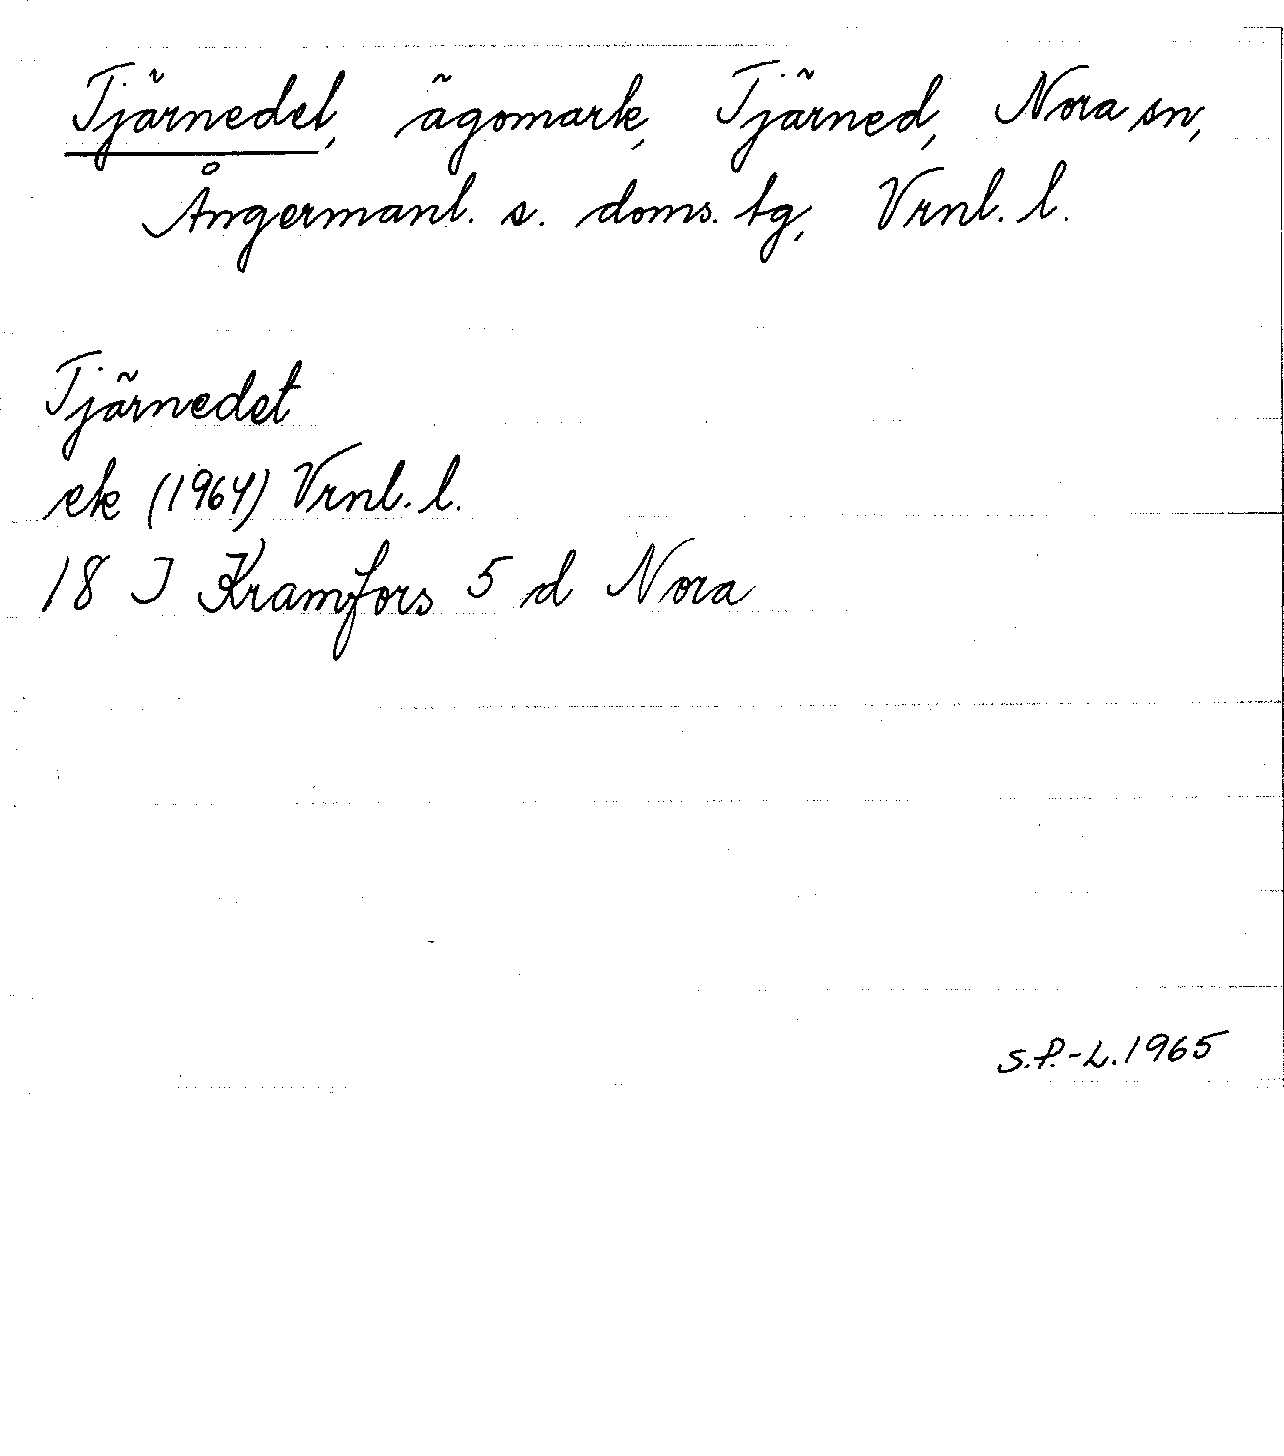 Tjärnedet, ägomark, Tjärned, Nora sn,
Ångermanl. s. doms. tg, Vrnl. l.
Tjärnedet
ek (1964) Vrnl. l.
18 I Kramfors 5 d Nora
S.P.-L. 1965